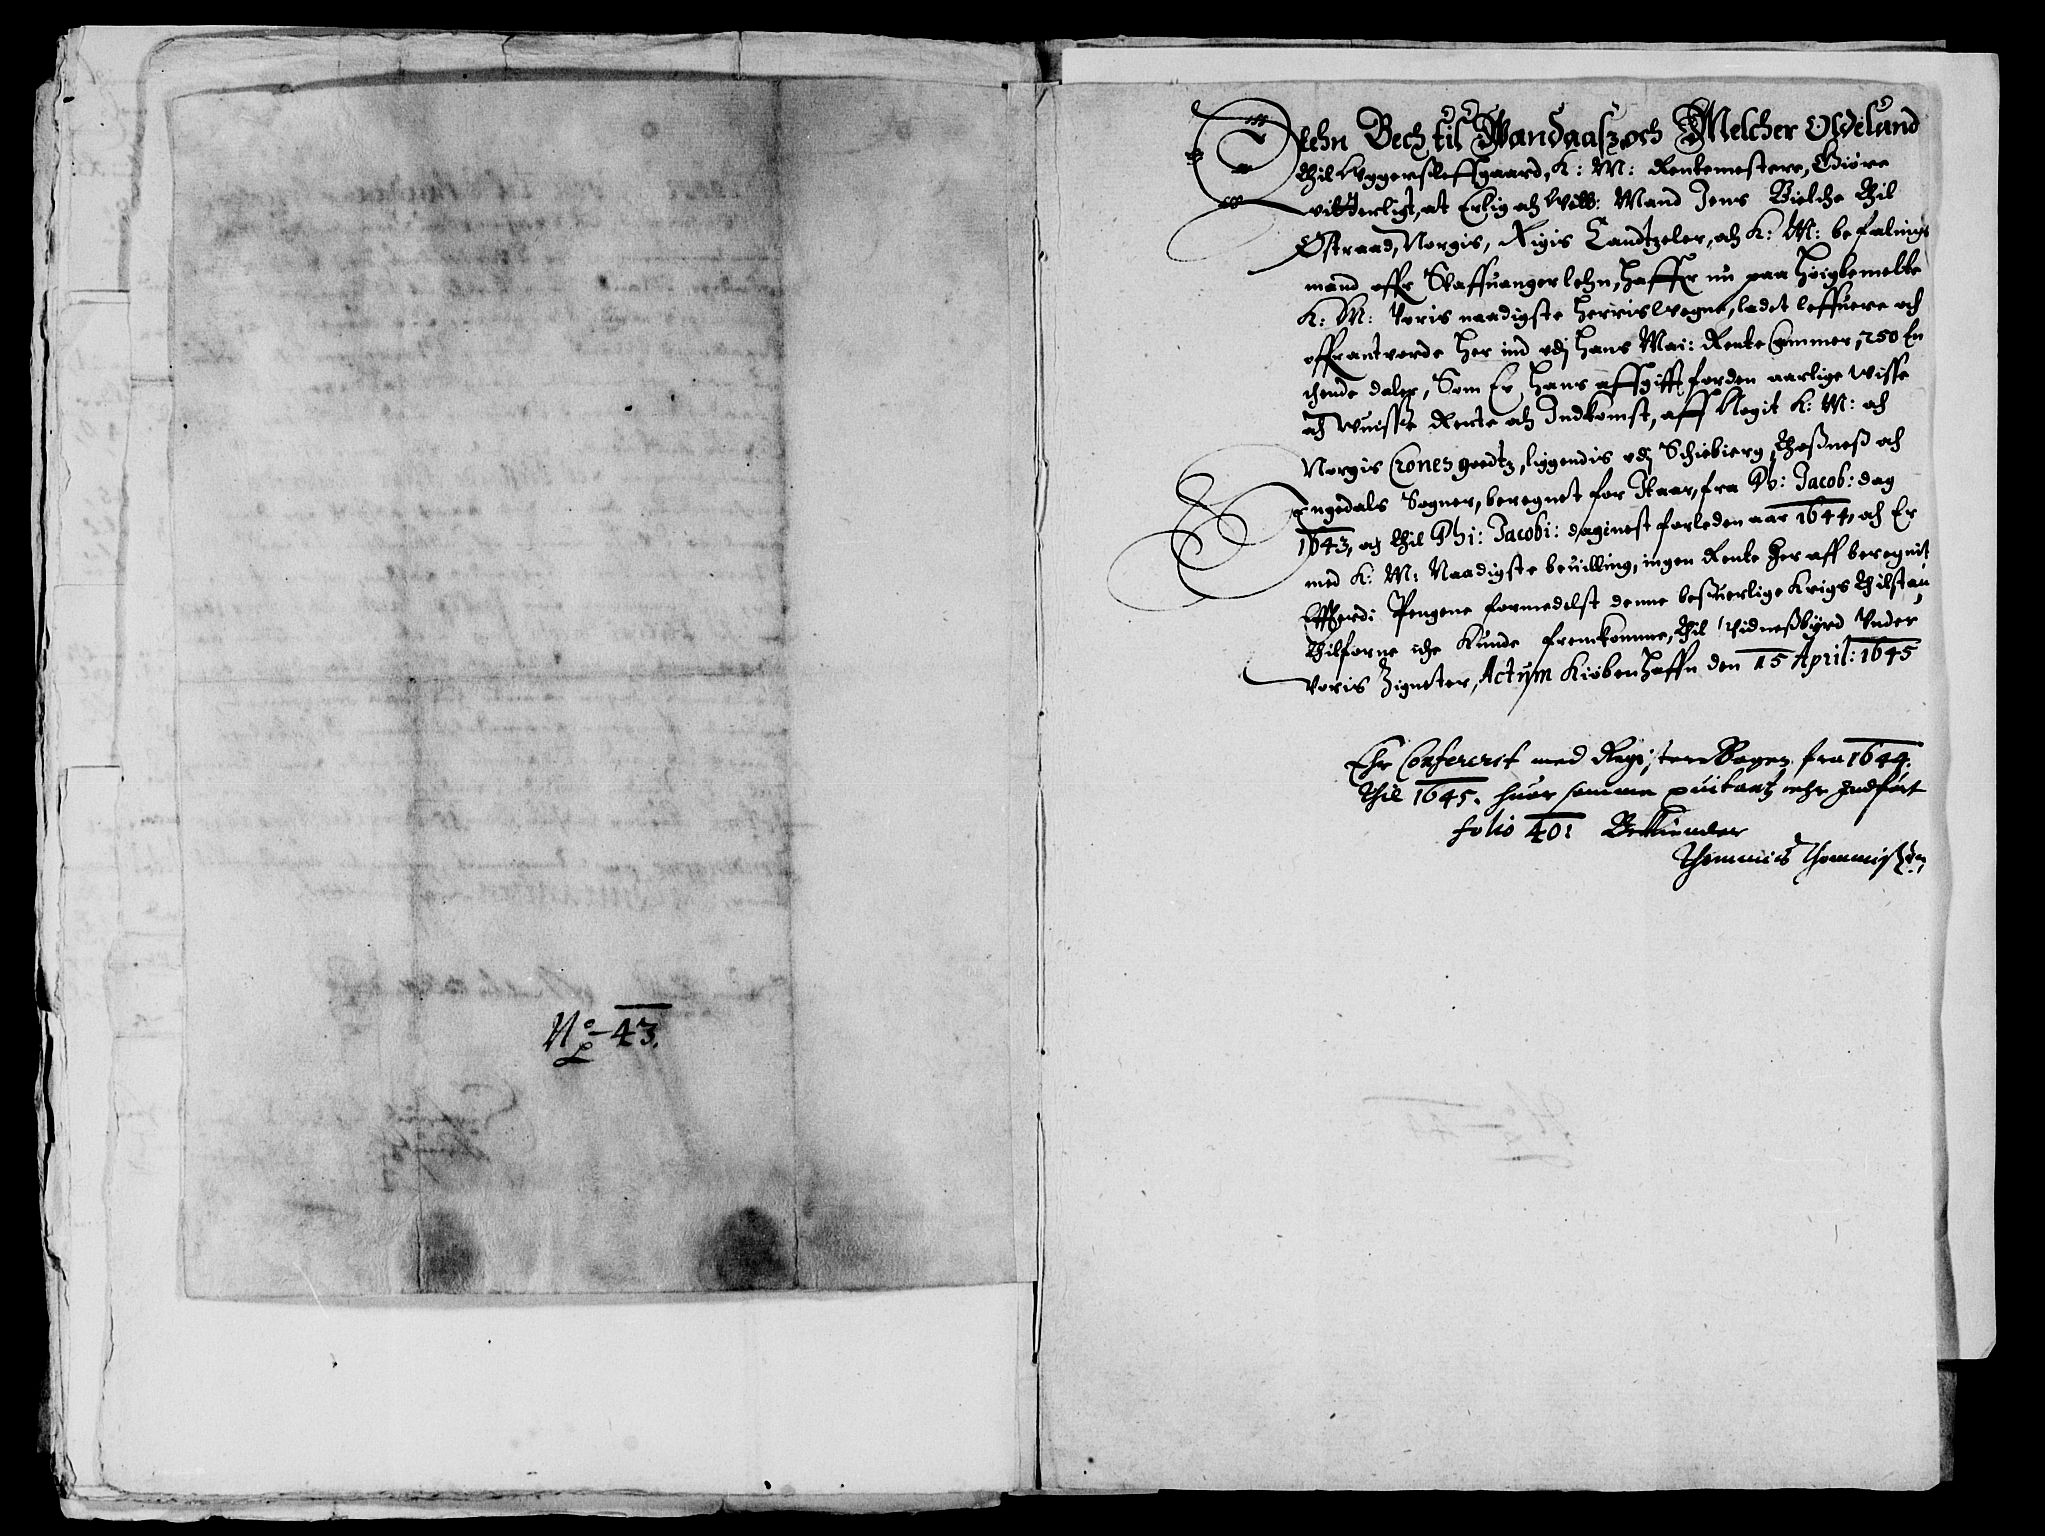 No 43.
Stehn Bech til Wandaasz och Melcher Oldelund
thil Uggersleffgaard, K: M: Rentemestere, Giöre
vitterligt, at Erlig och Velb: Mand Jens Bielche thil
Østraad, Norgis, Rigis Candtzeler, och K: M: befalings
mand offr Staffuanger lehn, haffr nu paa høigbemelte
K: M: voris naadigste herris Wegne, ladet leffuere och
offrantvorde her ind vdj hans Mai: Rente Cammer, 250 En
chende daler, Som Er hans affgifft for den aarlige Wisse
och Wuisse Rente och Indkomst, aff Negit K: M: och
Norgis Crones goedtz, liggendis vdj Schiebierg, Thoßneß och
Engedals Sogner, beregnet for Itaar, fra Ph: Jacob: dag
1643, och thil Phi: Jacobi: dag nest forleden aar 1644, och Er
med K: M: Naadigste beuilling, ingen Rente her aff beregnit
Efterdi Pengene formedelst denne besuerlige Krigs thilstau
thilforne iche Kunde fremkomme, thil Vidneßbyrd Vnder
voris Zigneter, Actum Kiöbenhaffn den 15 April: 1645
Ehr Confererit med Register Bogen fra 1644.
thil 1645. huor samme quitantz ehr Indfört
folio 401 Bekiender
Thommis Thommisøn